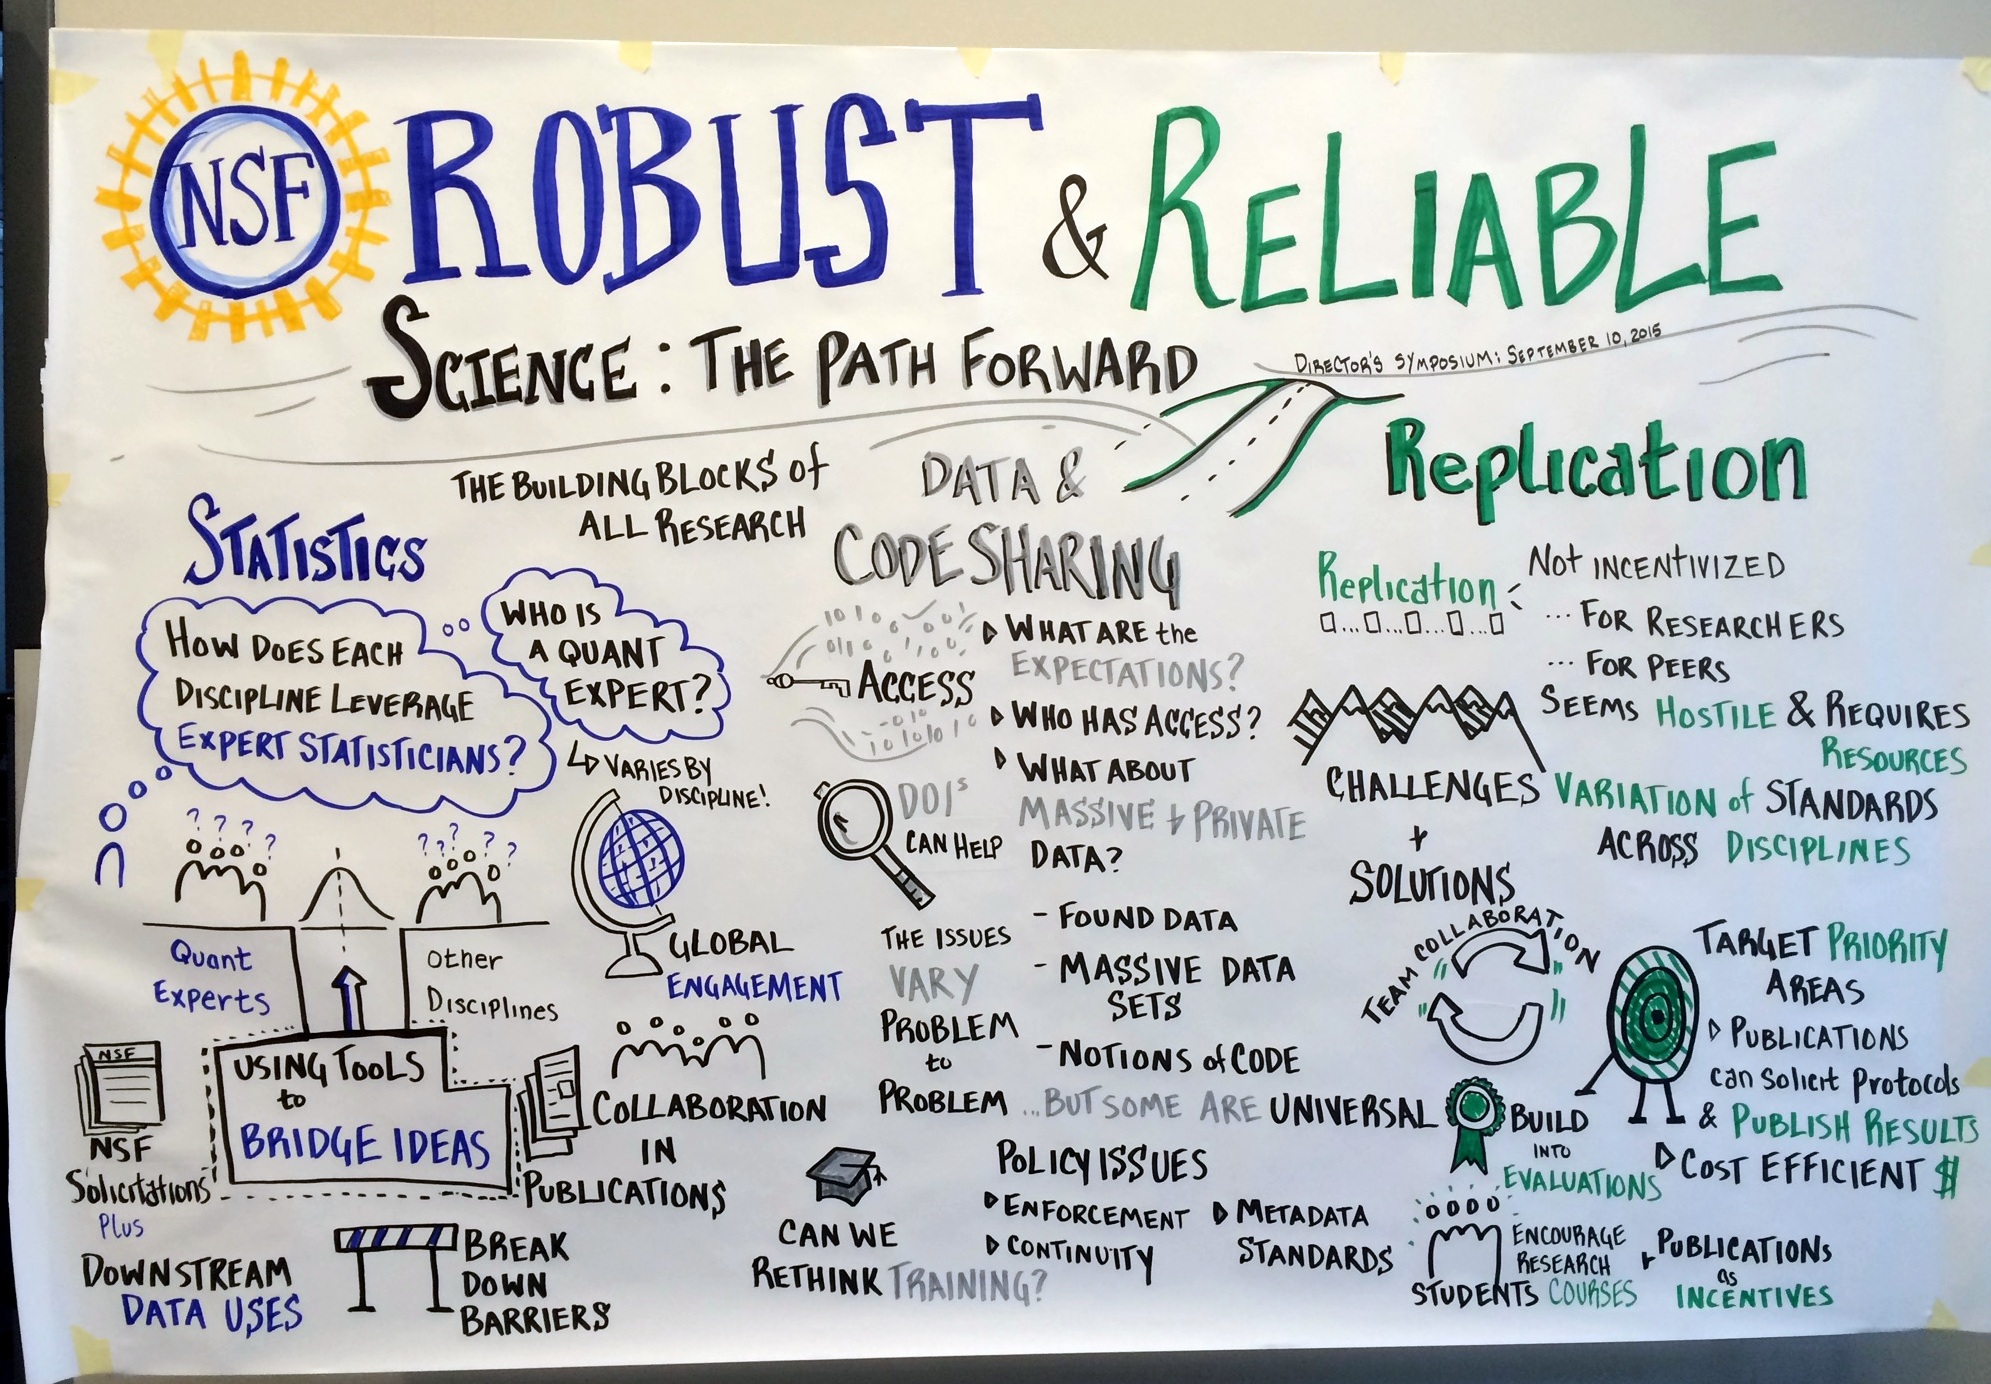 NSF
ROBUST & RELIABLE
SCIENCE: THE PATH FORWARD
DIRECTOR'S SYMPOSIUM: SEPTEMBER 10, 2015
THE BUILDING BLOCKS of
ALL RESEARCH
STATISTICS
HOW DOES EACH
DISCIPLINE LEVERAGE
EXPERT STATISTICIANS?
WHO IS
A QUANT
EXPERT?
VARIES BY
DISCIPLINE!
? ? ? ?
? ? ? ? ?
Quant
Experts
Other
Disciplines
USING TOOLS
to
BRIDGE IDEAS
NSF
NSF
Solicitations
Plus
DOWNSTREAM
DATA USES
BREAK
DOWN
BARRIERS
GLOBAL
ENGAGEMENT
COLLABORATION
IN
PUBLICATIONS
DATA &
CODE SHARING
ACCESS
WHAT ARE the
EXPECTATIONS?
WHO HAS ACCESS?
WHAT ABOUT
MASSIVE + PRIVATE
DATA?
DOI's
CAN HELP
THE ISSUES
VARY
PROBLEM
to
PROBLEM
- FOUND DATA
- MASSIVE DATA
SETS
- NOTIONS of CODE
...BUT SOME ARE UNIVERSAL
POLICY ISSUES
ENFORCEMENT
CONTINUITY
METADATA
STANDARDS
CAN WE
RETHINK TRAINING?
Replication
Replication
NOT INCENTIVIZED
... FOR RESEARCHERS
... FOR PEERS
SEEMS HOSTILE & REQUIRES
RESOURCES
VARIATION of STANDARDS
ACROSS DISCIPLINES
CHALLENGES
+
SOLUTIONS
TEAM COLLABORATION
TARGET PRIORITY
AREAS
PUBLICATIONS
can solicit Protocols
& PUBLISH RESULTS
COST EFFICIENT $
BUILD
INTO
EVALUATIONS
ENCOURAGE
RESEARCH
STUDENTS COURSES
PUBLICATIONS
as
INCENTIVES